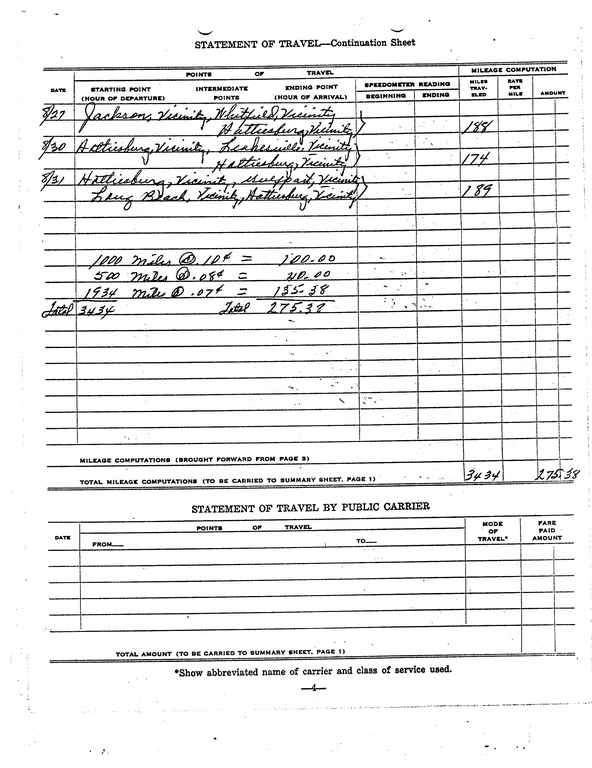 STATEMENT OF TRAVEL—Continuation Sheet
POINTS OF TRAVEL
MILEAGE COMPUTATION
DATE
STARTING POINT (HOUR OF DEPARTURE)
INTERMEDIATE POINTS
ENDING POINT (HOUR OF ARRIVAL)
SPEEDOMETER READING
BEGINNING ENDING
MILES TRAV- ELED
RATE PER MILE
AMOUNT
8/27 Jackson, Vicinity, Whitfield, Vicinity
Hattiesburg, Vicinity 188
8/30 Hattiesburg, Vicinity, Leakesville, Vicinity
Hattiesburg, Vicinity 174
8/31 Hattiesburg, Vicinity, Gulfport, Vicinity
Long Beach, Vicinity, Hattiesburg, Vicinity 189
1000 Miles @ .10¢ = 100.00
500 Miles @ .08¢ = 40.00
1934 Miles @ .07¢ = 135.38
Total 3434 Total 275.38
MILEAGE COMPUTATIONS (BROUGHT FORWARD FROM PAGE 3)
TOTAL MILEAGE COMPUTATIONS (TO BE CARRIED TO SUMMARY SHEET, PAGE 1) 3434 275.38
STATEMENT OF TRAVEL BY PUBLIC CARRIER
DATE
POINTS OF TRAVEL
FROM TO
MODE OF TRAVEL*
FARE PAID AMOUNT
TOTAL AMOUNT (TO BE CARRIED TO SUMMARY SHEET, PAGE 1)
*Show abbreviated name of carrier and class of service used.
—4—